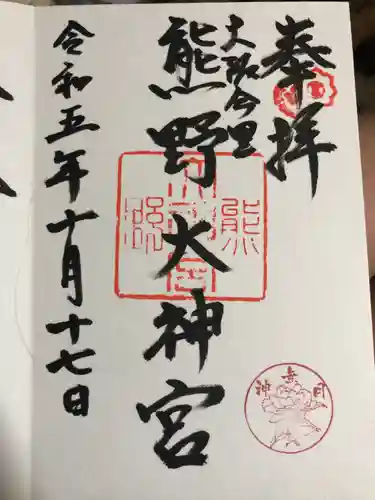 奉拝
大阪今里
熊野大神宮
令和五年十月十七日